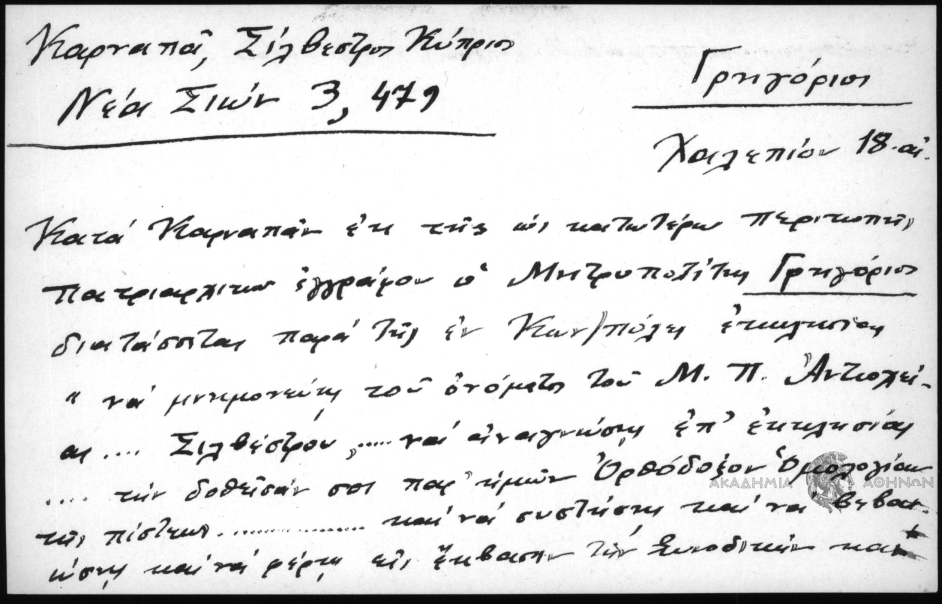 Καρναπᾶ, Σίλβεστρος Κύπριος
Νέα Σιών 3, 479
Γρηγόριος
Χαλεπίου 18. αἰ.
Κατά Καρναπᾶν ἐκ τῆς ὡς κατωτέρω περικοπῆς
πατριαρχικοῦ ἐγγράφου ὁ Μητροπολίτης Γρηγόριος
διατάσσεται παρά τῆς ἐν Κων/πόλει ἐκκλησίας
" νά μνημονεύῃ τοῦ ὀνόματος τοῦ Μ. Π. Ἀντιοχεί-
ας .... Σιλβέστρου, ..... νά ἀναγνώσῃς ἐπ' ἐκκλησίας
.... τήν δοθεῖσάν σοι παρ' ἡμῶν Ὀρθόδοξον Ὁμολογίαν
ΑΚΑΔΗΜΙΑ ΑΘΗΝΩΝ
τῆς πίστεως .............. καί νά συστήσῃς καί νά βεβαι-
ώσῃς καί νά φέρῃς εἰς ἔκβασιν τήν Συνοδικήν κα